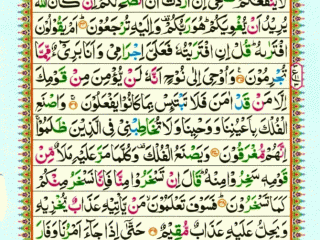 لَا يَنْفَعُكُمْ نُصْحِيْٓ اِنْ اَرَدْتُّ اَنْ اَنْصَحَ لَكُمْ اِنْ كَانَ اللّٰهُ
يُرِيْدُ اَنْ يُّغْوِيَكُمْ هُوَ رَبُّكُمْ وَاِلَيْهِ تُرْجَعُوْنَ اَمْ يَقُوْلُوْنَ
افْتَرٰىهُ قُلْ اِنِ افْتَرَيْتُهٗ فَعَلَيَّ اِجْرَامِيْ وَاَنَا بَرِيْٓءٌ مِّمَّا
تُجْرِمُوْنَ وَاُوْحِيَ اِلٰى نُوْحٍ اَنَّهٗ لَنْ يُّؤْمِنَ مِنْ قَوْمِكَ
اِلَّا مَنْ قَدْ اٰمَنَ فَلَا تَبْتَئِسْ بِمَا كَانُوْا يَفْعَلُوْنَ وَاصْنَعِ
الْفُلْكَ بِاَعْيُنِنَا وَوَحْيِنَا وَلَا تُخَاطِبْنِيْ فِي الَّذِيْنَ ظَلَمُوْا
اِنَّهُمْ مُّغْرَقُوْنَ وَيَصْنَعُ الْفُلْكَ وَكُلَّمَا مَرَّ عَلَيْهِ مَلَاٌ مِّنْ
قَوْمِهٖ سَخِرُوْا مِنْهُ قَالَ اِنْ تَسْخَرُوْا مِنَّا فَاِنَّا نَسْخَرُ مِنْكُمْ
كَمَا تَسْخَرُوْنَ فَسَوْفَ تَعْلَمُوْنَ مَنْ يَّاْتِيْهِ عَذَابٌ يُّخْزِيْهِ
وَيَحِلُّ عَلَيْهِ عَذَابٌ مُّقِيْمٌ حَتّٰٓى اِذَا جَآءَ اَمْرُنَا وَفَارَ